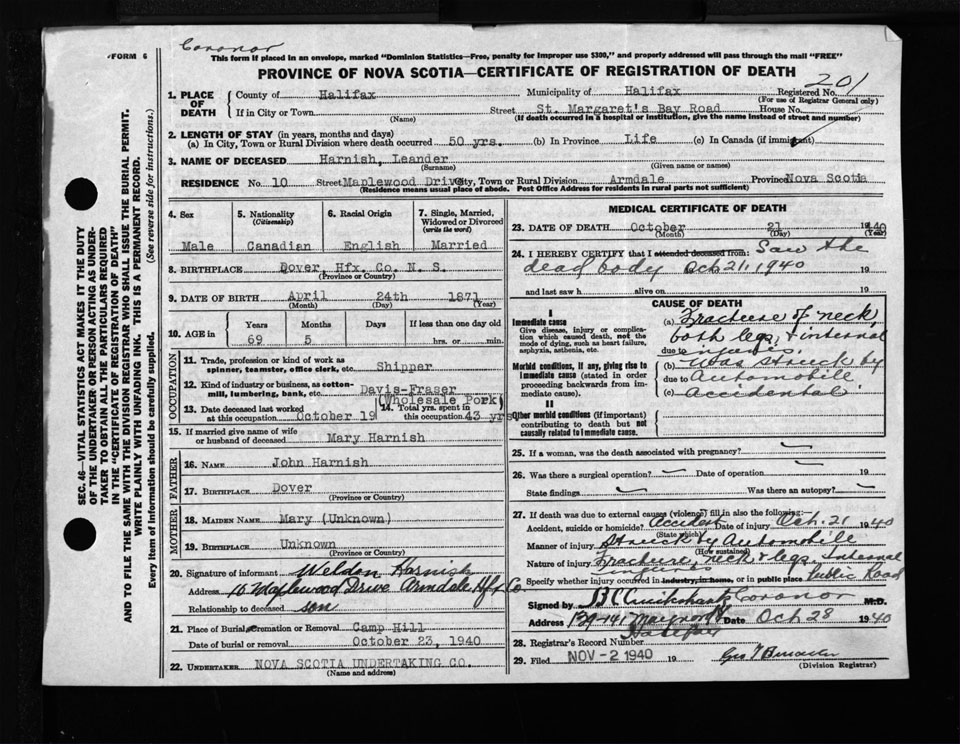 Coroner
FORM 6
This form if placed in an envelope, marked "Dominion Statistics—Free, penalty for improper use $300," and properly addressed will pass through the mail "FREE"
PROVINCE OF NOVA SCOTIA—CERTIFICATE OF REGISTRATION OF DEATH
201
1. PLACE OF DEATH
County of Halifax Municipality of Halifax Registered No.
(For use of Registrar General only)
If in City or Town Street St. Margaret's Bay Road House No.
(Name) (If death occurred in a hospital or institution, give the name instead of street and number)
2. LENGTH OF STAY (in years, months and days)
(a) In City, Town or Rural Division where death occurred 50 yrs. (b) In Province Life (c) In Canada (if immigrant)
3. NAME OF DECEASED Harnish, Leander
(Surname) (Given name or names)
RESIDENCE No. 10 Street Maplewood Drive City, Town or Rural Division Armdale Province Nova Scotia
(Residence means usual place of abode. Post Office Address for residents in rural parts not sufficient)
4. Sex 5. Nationality (Citizenship) 6. Racial Origin 7. Single, Married, Widowed or Divorced (write the word)
Male Canadian English Married
8. BIRTHPLACE Dover, Hfx. Co. N. S.
(Province or Country)
9. DATE OF BIRTH April 24th 1871
(Month) (Day) (Year)
10. AGE in Years Months Days If less than one day old
69 5 hrs. or min.
OCCUPATION
11. Trade, profession or kind of work as spinner, teamster, office clerk, etc. Shipper
12. Kind of industry or business, as cotton-mill, lumbering, bank, etc. Davis-Fraser
(Wholesale Pork)
13. Date deceased last worked at this occupation October 19 14. Total yrs. spent in this occupation 43 yrs
15. If married give name of wife or husband of deceased Mary Harnish
FATHER
16. NAME John Harnish
17. BIRTHPLACE Dover
(Province or Country)
MOTHER
18. MAIDEN NAME Mary (Unknown)
19. BIRTHPLACE Unknown
(Province or Country)
20. Signature of informant Weldon Harnish
Address 10 Maplewood Drive Armdale Hfx Co.
Relationship to deceased son
21. Place of Burial, Cremation or Removal Camp Hill
Date of burial or removal October 23, 1940
22. UNDERTAKER NOVA SCOTIA UNDERTAKING CO.
(Name and address)
MEDICAL CERTIFICATE OF DEATH
23. DATE OF DEATH October 21 1940
(Month) (Day) (Year)
24. I HEREBY CERTIFY that I attended deceased from: Saw the
dead body Oct 21, 1940 19
and last saw h alive on 19
CAUSE OF DEATH
I
Immediate cause
Give disease, injury or complication which caused death, not the mode of dying, such as heart failure, asphyxia, asthenia, etc.
(a) Fracture of neck,
both legs, & internal
due to injuries.
Morbid conditions, if any, giving rise to immediate cause (stated in order proceeding backwards from immediate cause).
(b) Was struck by
due to Automobile
(c) Accidental
II
Other morbid conditions (if important) contributing to death but not causally related to immediate cause.
25. If a woman, was the death associated with pregnancy?
26. Was there a surgical operation? Date of operation 19
State findings Was there an autopsy?
27. If death was due to external causes (violence) fill in also the following:—
Accident, suicide or homicide? Accident Date of injury Oct. 21 1940
(State which)
Manner of injury Struck by Automobile
(How sustained)
Nature of injury Fracture, neck & legs, Internal
injuries
Specify whether injury occurred in industry, in home, or in public place Public Road
Signed by Coroner M.D.
Address 139-141 Maynard St Date Oct 28 1940
Halifax
28. Registrar's Record Number
29. Filed NOV - 2 1940 19
(Division Registrar)
SEC. 46—VITAL STATISTICS ACT MAKES IT THE DUTY
OF THE UNDERTAKER OR PERSON ACTING AS UNDERTAKER TO OBTAIN ALL THE PARTICULARS REQUIRED
IN THE "CERTIFICATE OF REGISTRATION OF DEATH"
AND TO FILE THE SAME WITH THE DIVISION REGISTRAR WHO SHALL ISSUE THE BURIAL PERMIT.
WRITE PLAINLY WITH UNFADING INK. THIS IS A PERMANENT RECORD.
Every item of information should be carefully supplied. (See reverse side for instructions.)